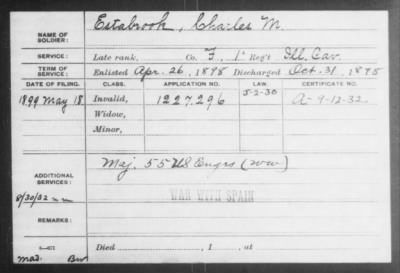 NAME OF SOLDIER: Estabrook, Charles M.
SERVICE: Late rank, Co. F, 1" Reg't Ill. Cav.
TERM OF SERVICE: Enlisted Apr. 26, 1898 Discharged Oct. 31, 1898
DATE OF FILING. CLASS. APPLICATION NO. LAW. CERTIFICATE NO.
5-2-30
1899 May 18 Invalid, 1227296 A-9-12-32.
Widow,
Minor,
Maj. 55 US Engrs (WW)
ADDITIONAL SERVICES:
WAR WITH SPAIN
8/30/32
REMARKS:
Died , 1 , at